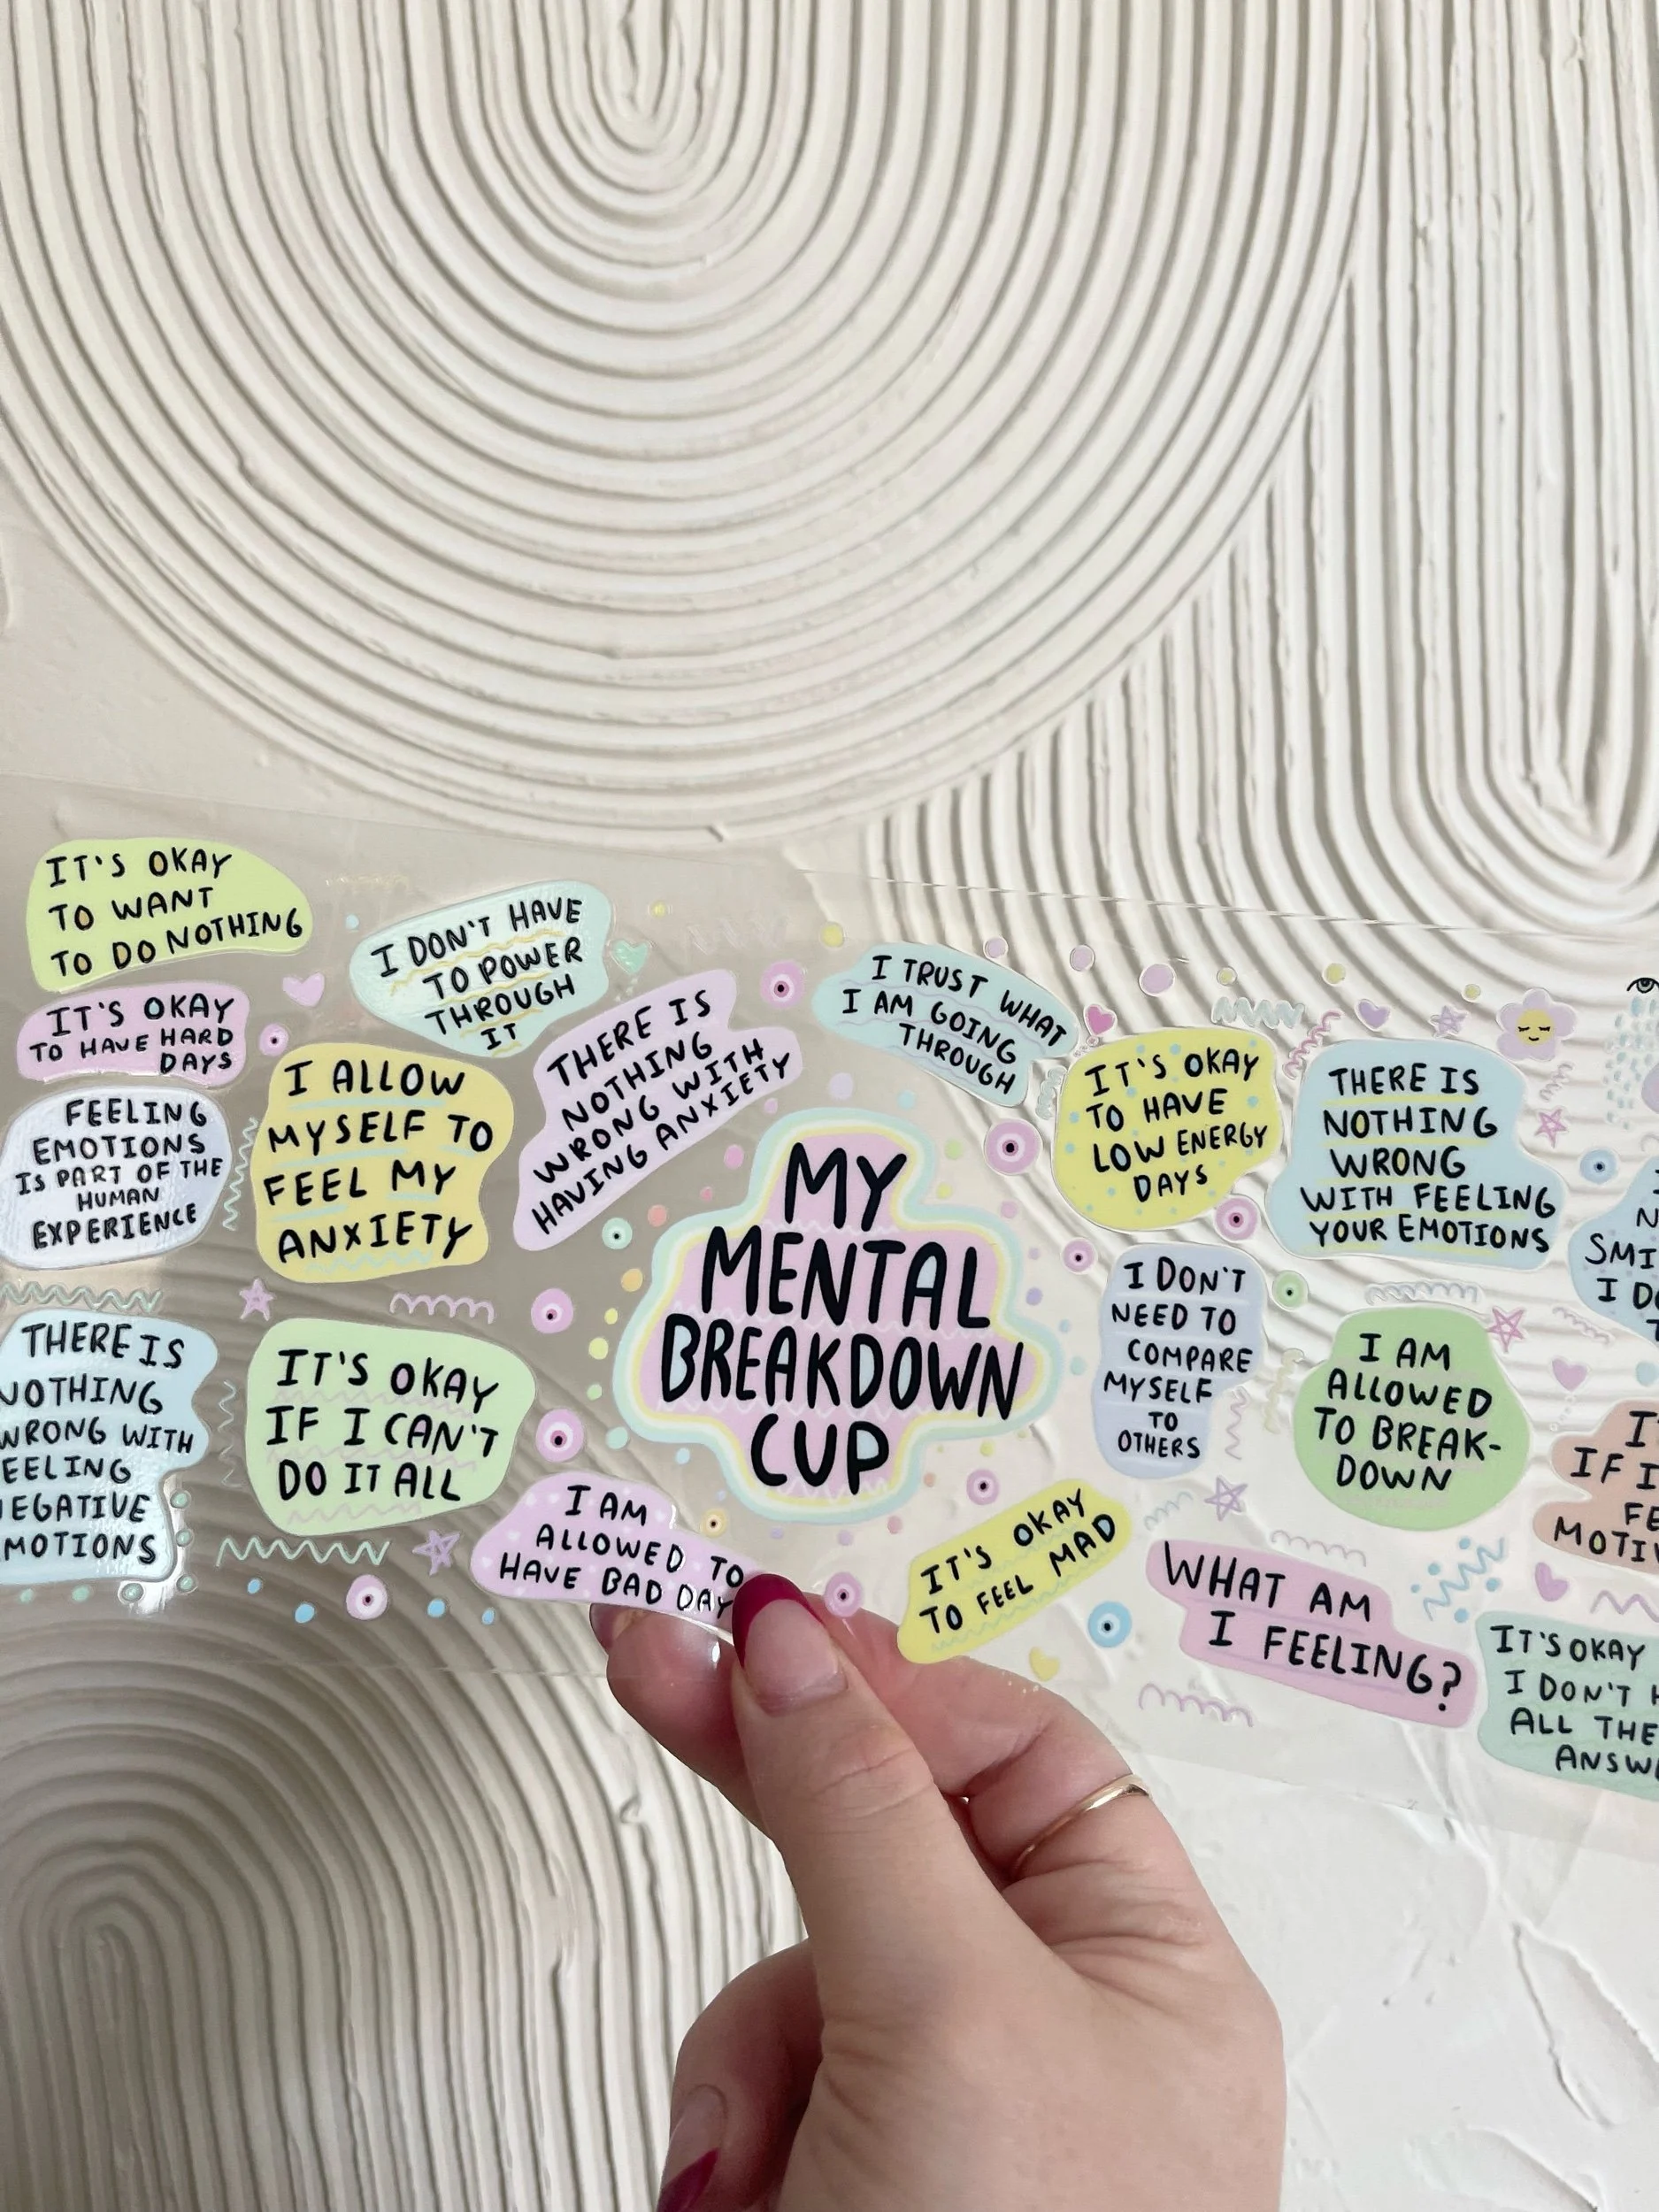 IT'S OKAY
TO WANT
TO DO NOTHING
I DON'T HAVE
TO POWER
THROUGH
IT
IT'S OKAY
TO HAVE HARD
DAYS
FEELING
EMOTIONS
IS PART OF THE
HUMAN
EXPERIENCE
I ALLOW
MYSELF TO
FEEL MY
ANXIETY
THERE IS
NOTHING
WRONG WITH
HAVING ANXIETY
I TRUST WHAT
I AM GOING
THROUGH
IT'S OKAY
TO HAVE
LOW ENERGY
DAYS
THERE IS
NOTHING
WRONG
WITH FEELING
YOUR EMOTIONS
MY
MENTAL
BREAKDOWN
CUP
THERE IS
NOTHING
WRONG WITH
FEELING
NEGATIVE
EMOTIONS
IT'S OKAY
IF I CAN'T
DO IT ALL
I AM
ALLOWED TO
HAVE BAD DAY
I DON'T
NEED TO
COMPARE
MYSELF
TO
OTHERS
I AM
ALLOWED
TO BREAK-
DOWN
IT'S OKAY
TO FEEL MAD
WHAT AM
I FEELING?
SMI
I DO
IF I
FE
MOTIV
IT'S OKAY
I DON'T H
ALL THE
ANSW